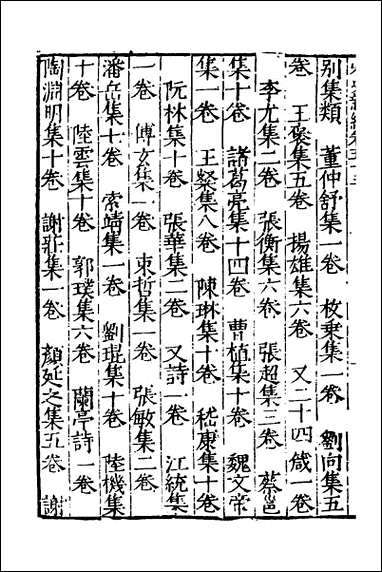 別集類　董仲舒集一卷　枚乗集一卷　劉向集五
卷　王襃集五卷　揚雄集六卷　又二十四箴一卷
李尤集二卷　張衡集六卷　張超集三卷　蔡邕
集十卷　諸葛亮集十四卷　曹植集十卷　魏文帝
集一卷　王粲集八卷　陳琳集十卷　嵇康集十卷
阮林集十卷　張華集二卷　又詩一卷　江統集
一卷　傅玄集一卷　束晳集一卷　張敏集二卷
潘岳集七卷　索靖集一卷　劉琨集十卷　陸機集
十卷　陸雲集十卷　郭璞集六卷　蘭亭詩一卷
陶淵明集十卷　謝莊集一卷　顔延之集五卷　謝